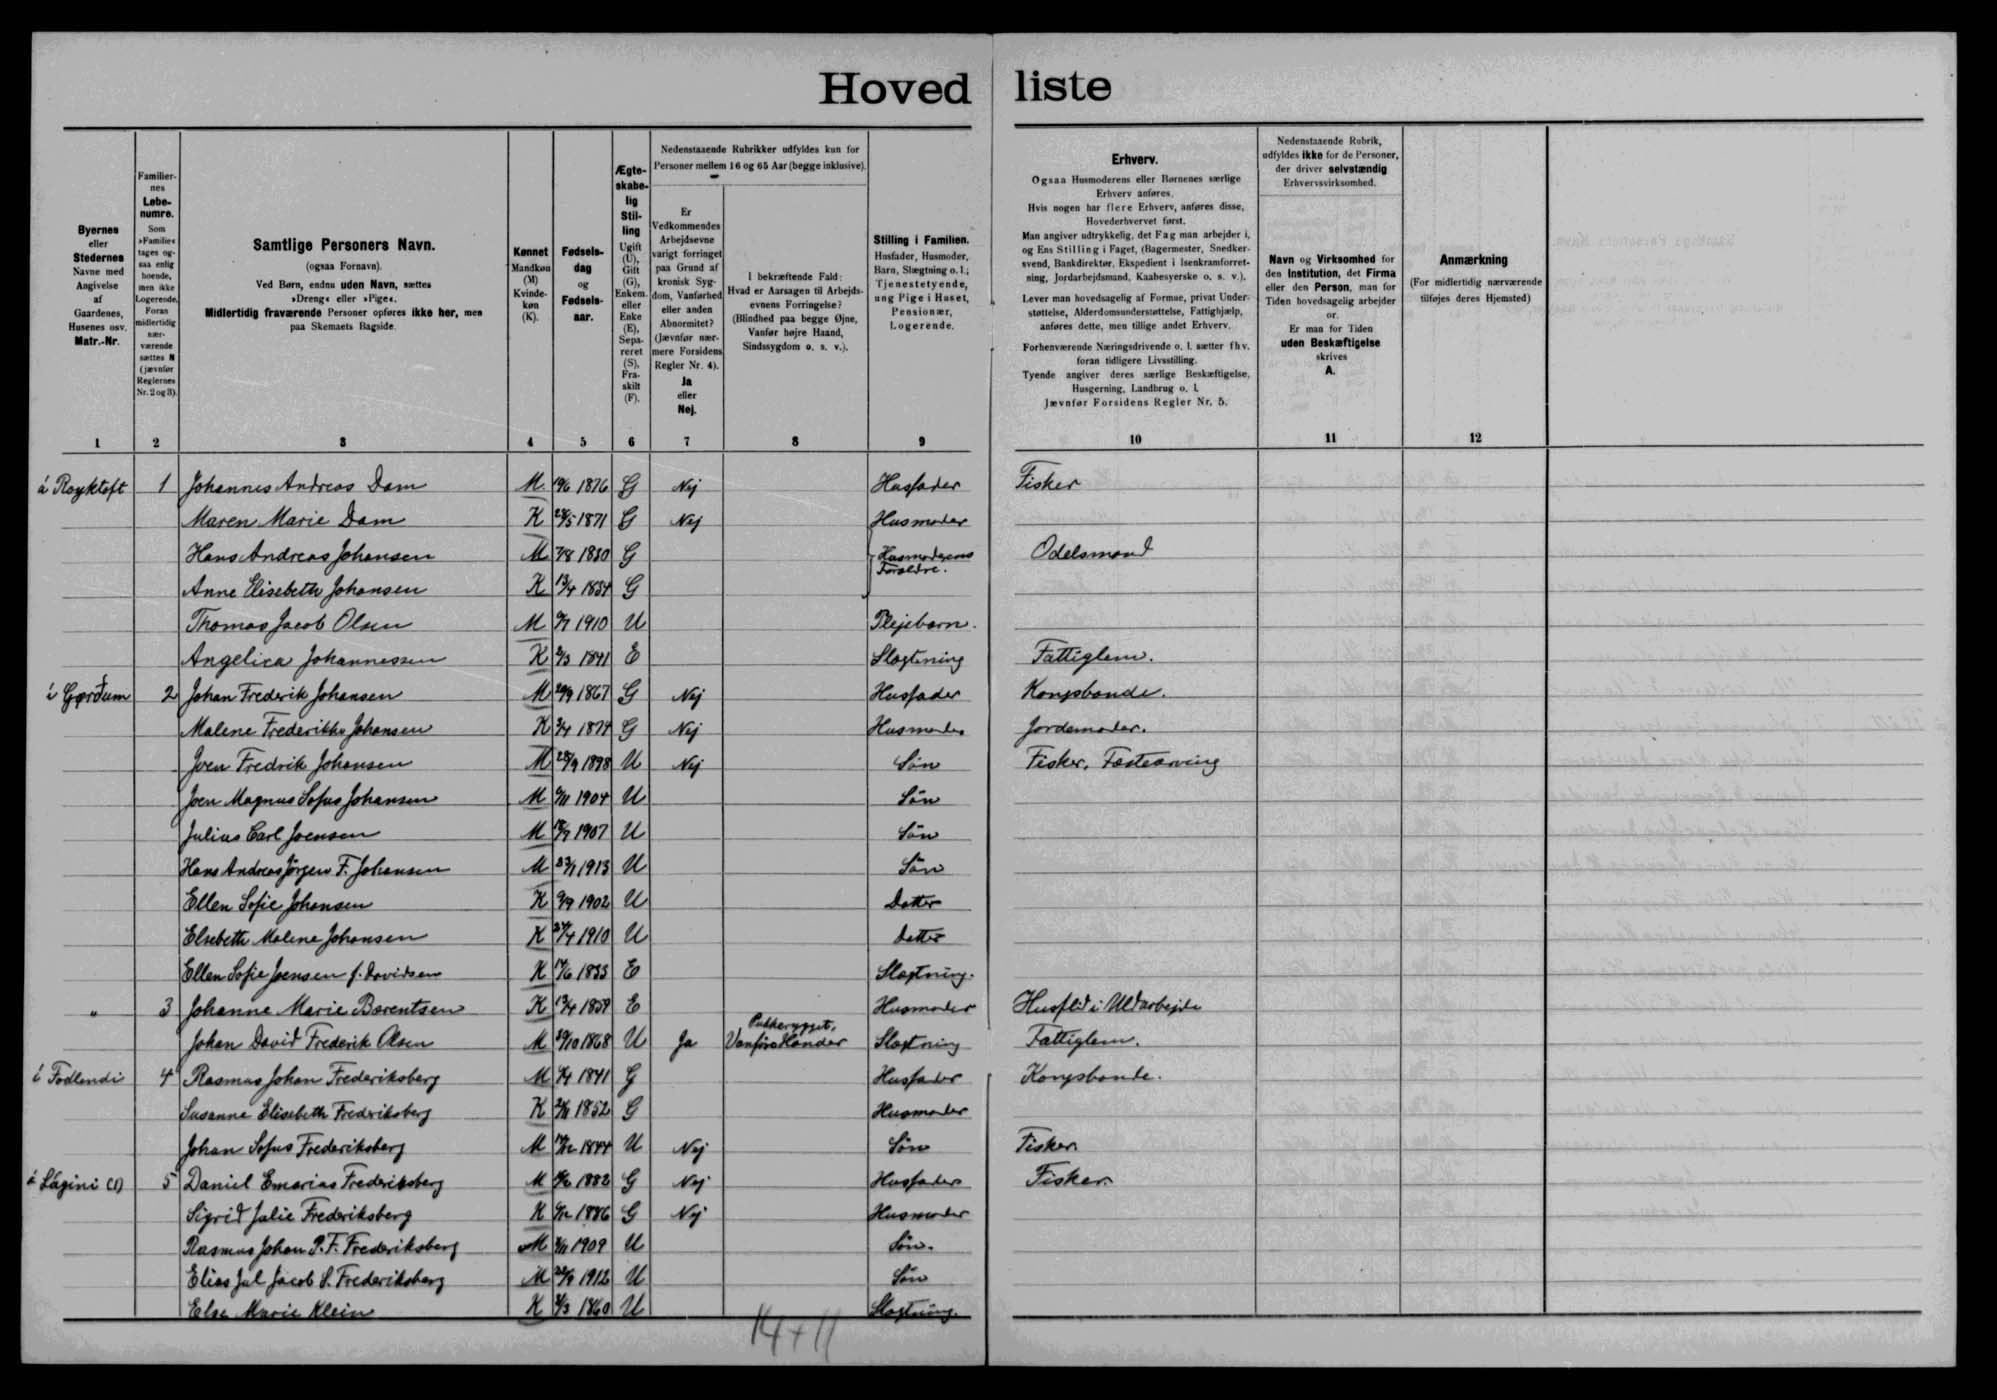 Hoved liste
Byernes
eller
Stedernes
Navne med
Angivelse
af
Gaardenes,
Husenes osv.
Matr.-Nr.
Familier-
nes
Løbe-
numre.
Som
»Familie«
tages og-
saa enlig
boende,
men ikke
Logerende.
Foran
midlertidig
nær-
værende
sættes N
(jævnfør
Reglernes
Nr. 2 og 3).
Samtlige Personers Navn.
(ogsaa Fornavn).
Ved Børn, endnu uden Navn, sættes
»Dreng« eller »Pige«.
Midlertidig fraværende Personer opføres ikke her, men
paa Skemaets Bagside.
Kønnet
Mandkøn
(M)
Kvinde-
køn
(K).
Fødsels-
dag
og
Fødsels-
aar.
Ægte-
skabe-
lig
Stil-
ling
Ugift
(U),
Gift
(G),
Enkem.
eller
Enke
(E),
Sepa-
reret
(S),
Fra-
skilt
(F).
Nedenstaaende Rubrikker udfyldes kun for
Personer mellem 16 og 65 Aar (begge inklusive).
Er
Vedkommendes
Arbejdsevne
varigt forringet
paa Grund af
kronisk Syg-
dom, Vanførhed
eller anden
Abnormitet?
(Jævnfør nær-
mere Forsidens
Regler Nr. 4).
Ja
eller
Nej.
I bekræftende Fald:
Hvad er Aarsagen til Arbejds-
evnens Forringelse?
(Blindhed paa begge Øjne,
Vanfør højre Haand,
Sindssygdom o. s. v.).
Stilling i Familien.
Husfader, Husmoder,
Barn, Slægtning o. l.;
Tjenestetyende,
ung Pige i Huset,
Pensionær,
Logerende.
Erhverv.
Ogsaa Husmoderens eller Børnenes særlige
Erhverv anføres.
Hvis nogen har flere Erhverv, anføres disse,
Hovederhvervet først.
Man angiver udtrykkelig, det Fag man arbejder i,
og Ens Stilling i Faget, (Bagermester, Snedker-
svend, Bankdirektør, Ekspedient i Isenkramforret-
ning, Jordarbejdsmand, Kaabesyerske o. s. v.).
Lever man hovedsagelig af Formue, privat Under-
støttelse, Alderdomsunderstøttelse, Fattighjælp,
anføres dette, men tillige andet Erhverv.
Forhenværende Næringsdrivende o. l. sætter fhv.
foran tidligere Livsstilling.
Tyende angiver deres særlige Beskæftigelse,
Husgerning, Landbrug o. l.
Jævnfør Forsidens Regler Nr. 5.
Nedenstaaende Rubrik,
udfyldes ikke for de Personer,
der driver selvstændig
Erhvervsvirksomhed.
Navn og Virksomhed for
den Institution, det Firma
eller den Person, man for
Tiden hovedsagelig arbejder
or.
Er man for Tiden
uden Beskæftigelse
skrives
A.
Anmærkning
(For midlertidig nærværende
tilføjes deres Hjemsted)
1 2 3 4 5 6 7 8 9 10 11 12
á Royktoft 1 Johannes Andreas Dam M 1876 G Nej Husfader Fisker
Maren Marie Dam K 28/5 1871 G Nej Husmoder
Hans Andreas Johansen M 1830 G Husmoderens Forældre. Odelsmand
Anne Elisebeth Johansen K 13/4 1834 G
Thomas Jacob Olsen M 1910 U Plejebarn.
Angelica Johannessen K 1841 E Slægtning Fattiglem.
í Gørðum 2 Johan Frederik Johansen M 1867 G Nej Husfader Kongsbonde.
Malene Frederikke Johansen K 1874 G Nej Husmoder Jordemoder.
Joen Fredrik Johansen M 28/9 1898 U Nej Søn Fisker, Fæstearving
Joen Magnus Sofus Johansen M 1904 U Søn
Julius Carl Joensen M 1907 U Søn
Hans Andreas Jørgen F. Johansen M 23/1 1913 U Søn
Ellen Sofie Johansen K 1902 U Datter
Elsebeth Malene Johansen K 1910 U Datter
Ellen Sofie Joensen f. Davidsen K 1833 E Slægtning.
" 3 Johanne Marie Barentsen K 13/4 1859 E Husmoder Husflid i Uldarbejde
Johan David Frederik Olsen M 1868 U Ja Pukkelrygget, Vanføre Hænder Slægtning Fattiglem.
í Todlendi 4 Rasmus Johan Frederiksberg M 1841 G Husfader Kongsbonde.
Susanne Elisebeth Frederiksberg K 1852 G Husmoder
Johan Sofus Frederiksberg M U Nej Søn Fisker
á Lágini (1) 5 Daniel Emarias Frederiksberg M 1882 G Nej Husfader Fisker
Sigrid Julie Frederiksberg K 1886 G Nej Husmoder
Rasmus Johan P. F. Frederiksberg M 1909 U Søn.
Elias Jul Jacob S. Frederiksberg M 1912 U Søn
Else Marie Klein K 1860 U Slægtning.
14+11